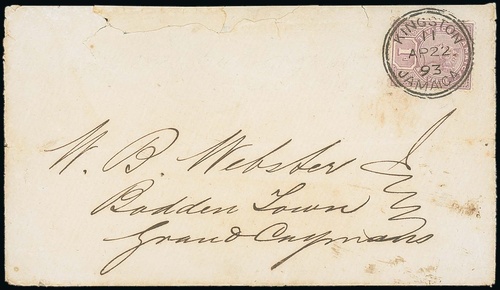 KINGSTON
11
AP 22
93
JAMAICA
W. B. Webster Esq
Bodden Town
Grand Caymans